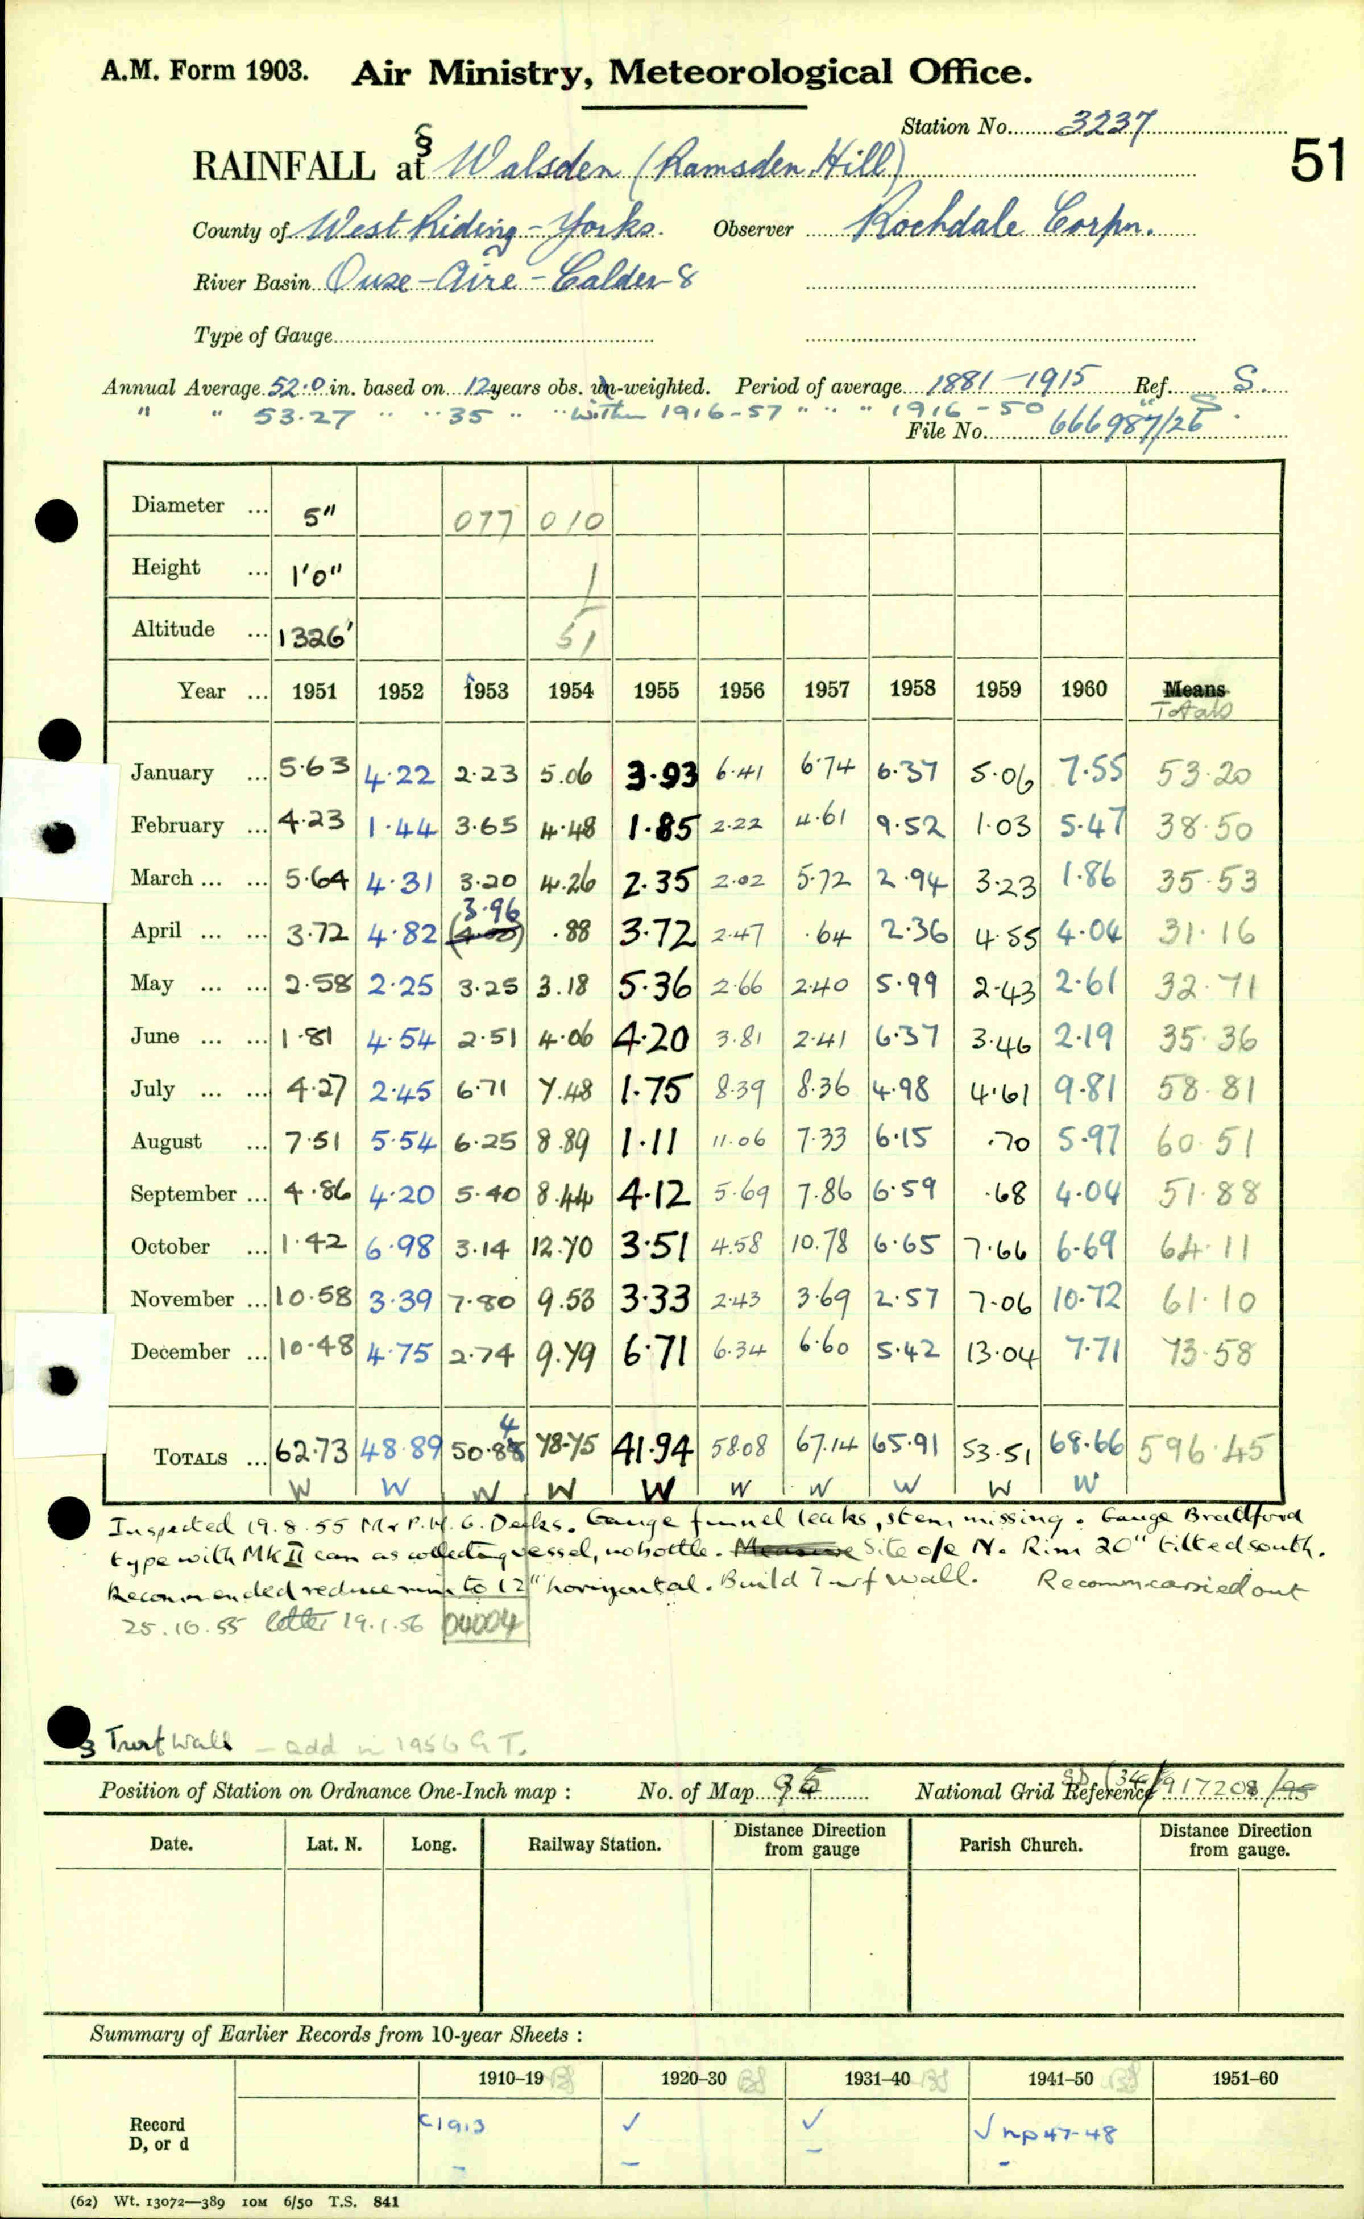 A.M. Form 1903. Air Ministry, Meteorological Office.
Station No. 3237
51
§
RAINFALL at Walsden (Ramsden Hill)
County of West Riding - Yorks. Observer Rochdale Corpn.
River Basin Ouse - Aire - Calder 8
Type of Gauge
Annual Average 52.0 in. based on 12 years obs. un-weighted. Period of average 1881-1915 Ref. S.
" " 53.27 " " 35 " " within 1916-57 " " " 1916-50 " S.
File No. 666987/26
Diameter ... 5" 077 010
Height ... 1'0" 1
Altitude ... 1326' 51
Year ... 1951 1952 1953 1954 1955 1956 1957 1958 1959 1960 Means
Totals
January ... 5.63 4.22 2.23 5.06 3.93 6.41 6.74 6.37 5.06 7.55 53.20
February ... 4.23 1.44 3.65 4.48 1.85 2.22 4.61 9.52 1.03 5.47 38.50
March ... ... 5.64 4.31 3.20 4.26 2.35 2.02 5.72 2.94 3.23 1.86 35.53
April ... ... 3.72 4.82 3.96 (4.00) .88 3.72 2.47 .64 2.36 4.55 4.04 31.16
May ... ... 2.58 2.25 3.25 3.18 5.36 2.66 2.40 5.99 2.43 2.61 32.71
June ... ... 1.81 4.54 2.51 4.06 4.20 3.81 2.41 6.37 3.46 2.19 35.36
July ... ... 4.27 2.45 6.71 7.48 1.75 8.39 8.36 4.98 4.61 9.81 58.81
August ... 7.51 5.54 6.25 8.89 1.11 11.06 7.33 6.15 .70 5.97 60.51
September ... 4.86 4.20 5.40 8.44 4.12 5.69 7.86 6.59 .68 4.04 51.88
October ... 1.42 6.98 3.14 12.70 3.51 4.58 10.78 6.65 7.66 6.69 64.11
November ... 10.58 3.39 7.80 9.53 3.33 2.43 3.69 2.57 7.06 10.72 61.10
December ... 10.48 4.75 2.74 9.79 6.71 6.34 6.60 5.42 13.04 7.71 73.58
TOTALS ... 62.73 48.89 50.84 78.75 41.94 58.08 67.14 65.91 53.51 68.66 596.45
W W W W W W W W W W
Inspected 19.8.55 Mr P.H.G. Gauge funnel leaks, stem missing. Gauge Bradford
type with MkII can as collecting vessel, no bottle. Measure Site o/e N. Rim 20" tilted south.
Recommended reduce rim to 12" horizontal. Build Turf wall. Recomm carried out
25.10.55 letter 19.1.56 04004
§ Turf Wall - add in 1956 G.T.
Position of Station on Ordnance One-Inch map : No. of Map 95 National Grid Reference SD (34)/917208/95
Date. Lat. N. Long. Railway Station. Distance Direction from gauge Parish Church. Distance Direction from gauge.
Summary of Earlier Records from 10-year Sheets :
1910-19 1920-30 1931-40 1941-50 1951-60
Record c1913 ✓ ✓ ✓ np 47-48
D, or d - - - -
(62) Wt. 13072—389 10M 6/50 T.S. 841